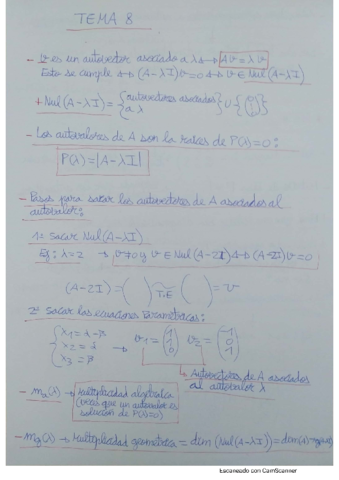 TEMA 8
- v es un autovector asociado a λ ↔ Av = λv
Esto se cumple ↔ (A-λI)v=0 ↔ v ∈ Nul(A-λI)
+ Nul(A-λI) = {autovectores asociados a λ} ∪ {
- Los autovalores de A son la raíces de P(λ)=0:
P(λ)=|A-λI|
- Pasos para sacar los autovectores de A asociados al
autovalor:
1º Sacar Nul(A-λI)
Ej: λ=2 → v≠0 y v ∈ Nul(A-2I) ↔ (A-2I)v=0
(A-2I) = ( ) ~ ( ) = v
2º Sacar las ecuaciones paramétricas:
x2 = λ → v1 = v2 =
x3 = β
↳ Autovectores de A asociados
al autovalor λ
- ma(λ) → Multiplicidad algebraica
(veces que un autovalor es
solución de P(λ)=0)
- mg(λ) → Multiplicidad geométrica = dim (Nul(A-λI)) = dim(A)-
Escaneado con CamScanner